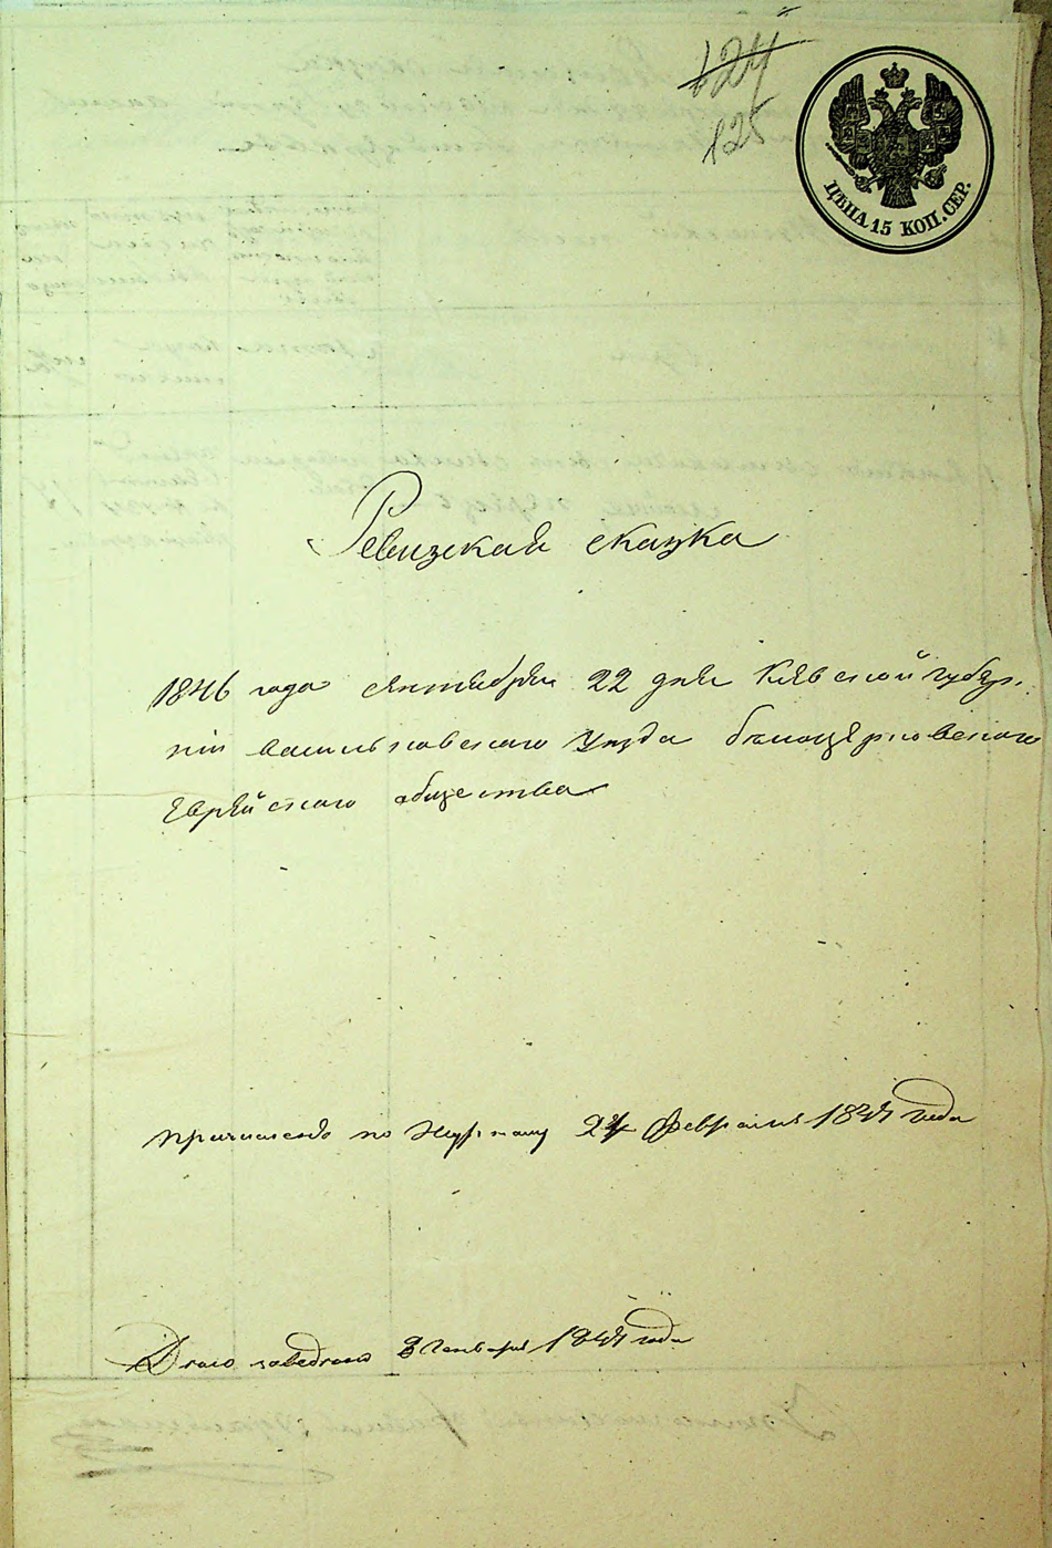 124
125
ЦѢНА 15 КОП. СЕР.
Ревизская сказка
1846 года октября 22 дня Киевской губер.
ніи васильковскаго уезда белоцерковского
Еврейскаго общества
причислено по 24 Февраля 1847 года
Дело заведено 8 Генваря 1847 года